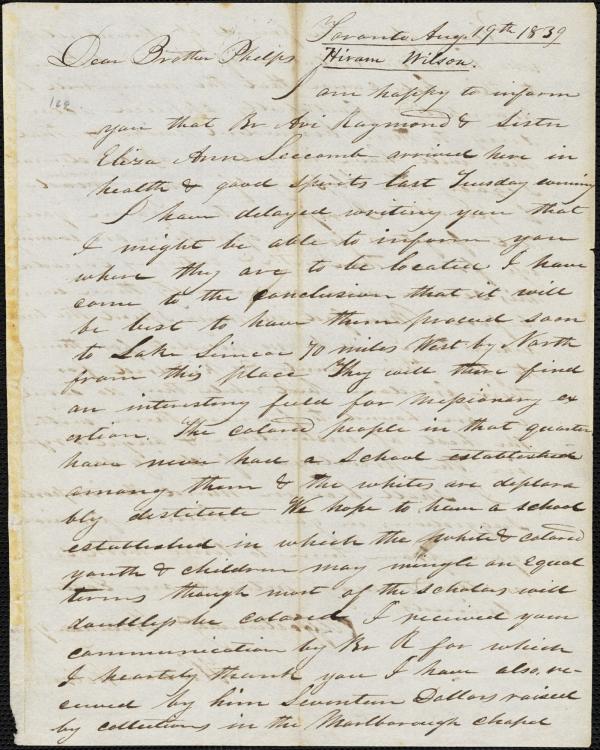 Toronto Aug. 19th 1839
Dear Brother Phelps
Hiram Wilson.
I am happy to inform
you that Br Avi Raymond & Sister
Eliza Ann Seccomb arrived here in
health & good spirits last Tuesday evening
I have delayed writing you that
I might be able to inform you
where they are to be located I have
come to the conclusion that it will
be best to have them proceed soon
to Lake Simcoe 70 miles West by North
from this place They will there find
an interesting field for missionary ex
ertion. The colored people in that quarter
have never had a school established
among them & the whites are deplora
bly destitute We hope to have a school
established in which the white & colored
youth & children may mingle on equal
terms though most of the scholars will
doubtless be colored I received your
communication by Br R for which
I heartily thank you I have also re-
ceived by him Seventeen Dollars raised
by collections in the Marlborough Chapel